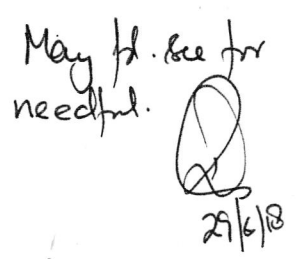 May pl. see for
needful.
29/6/18